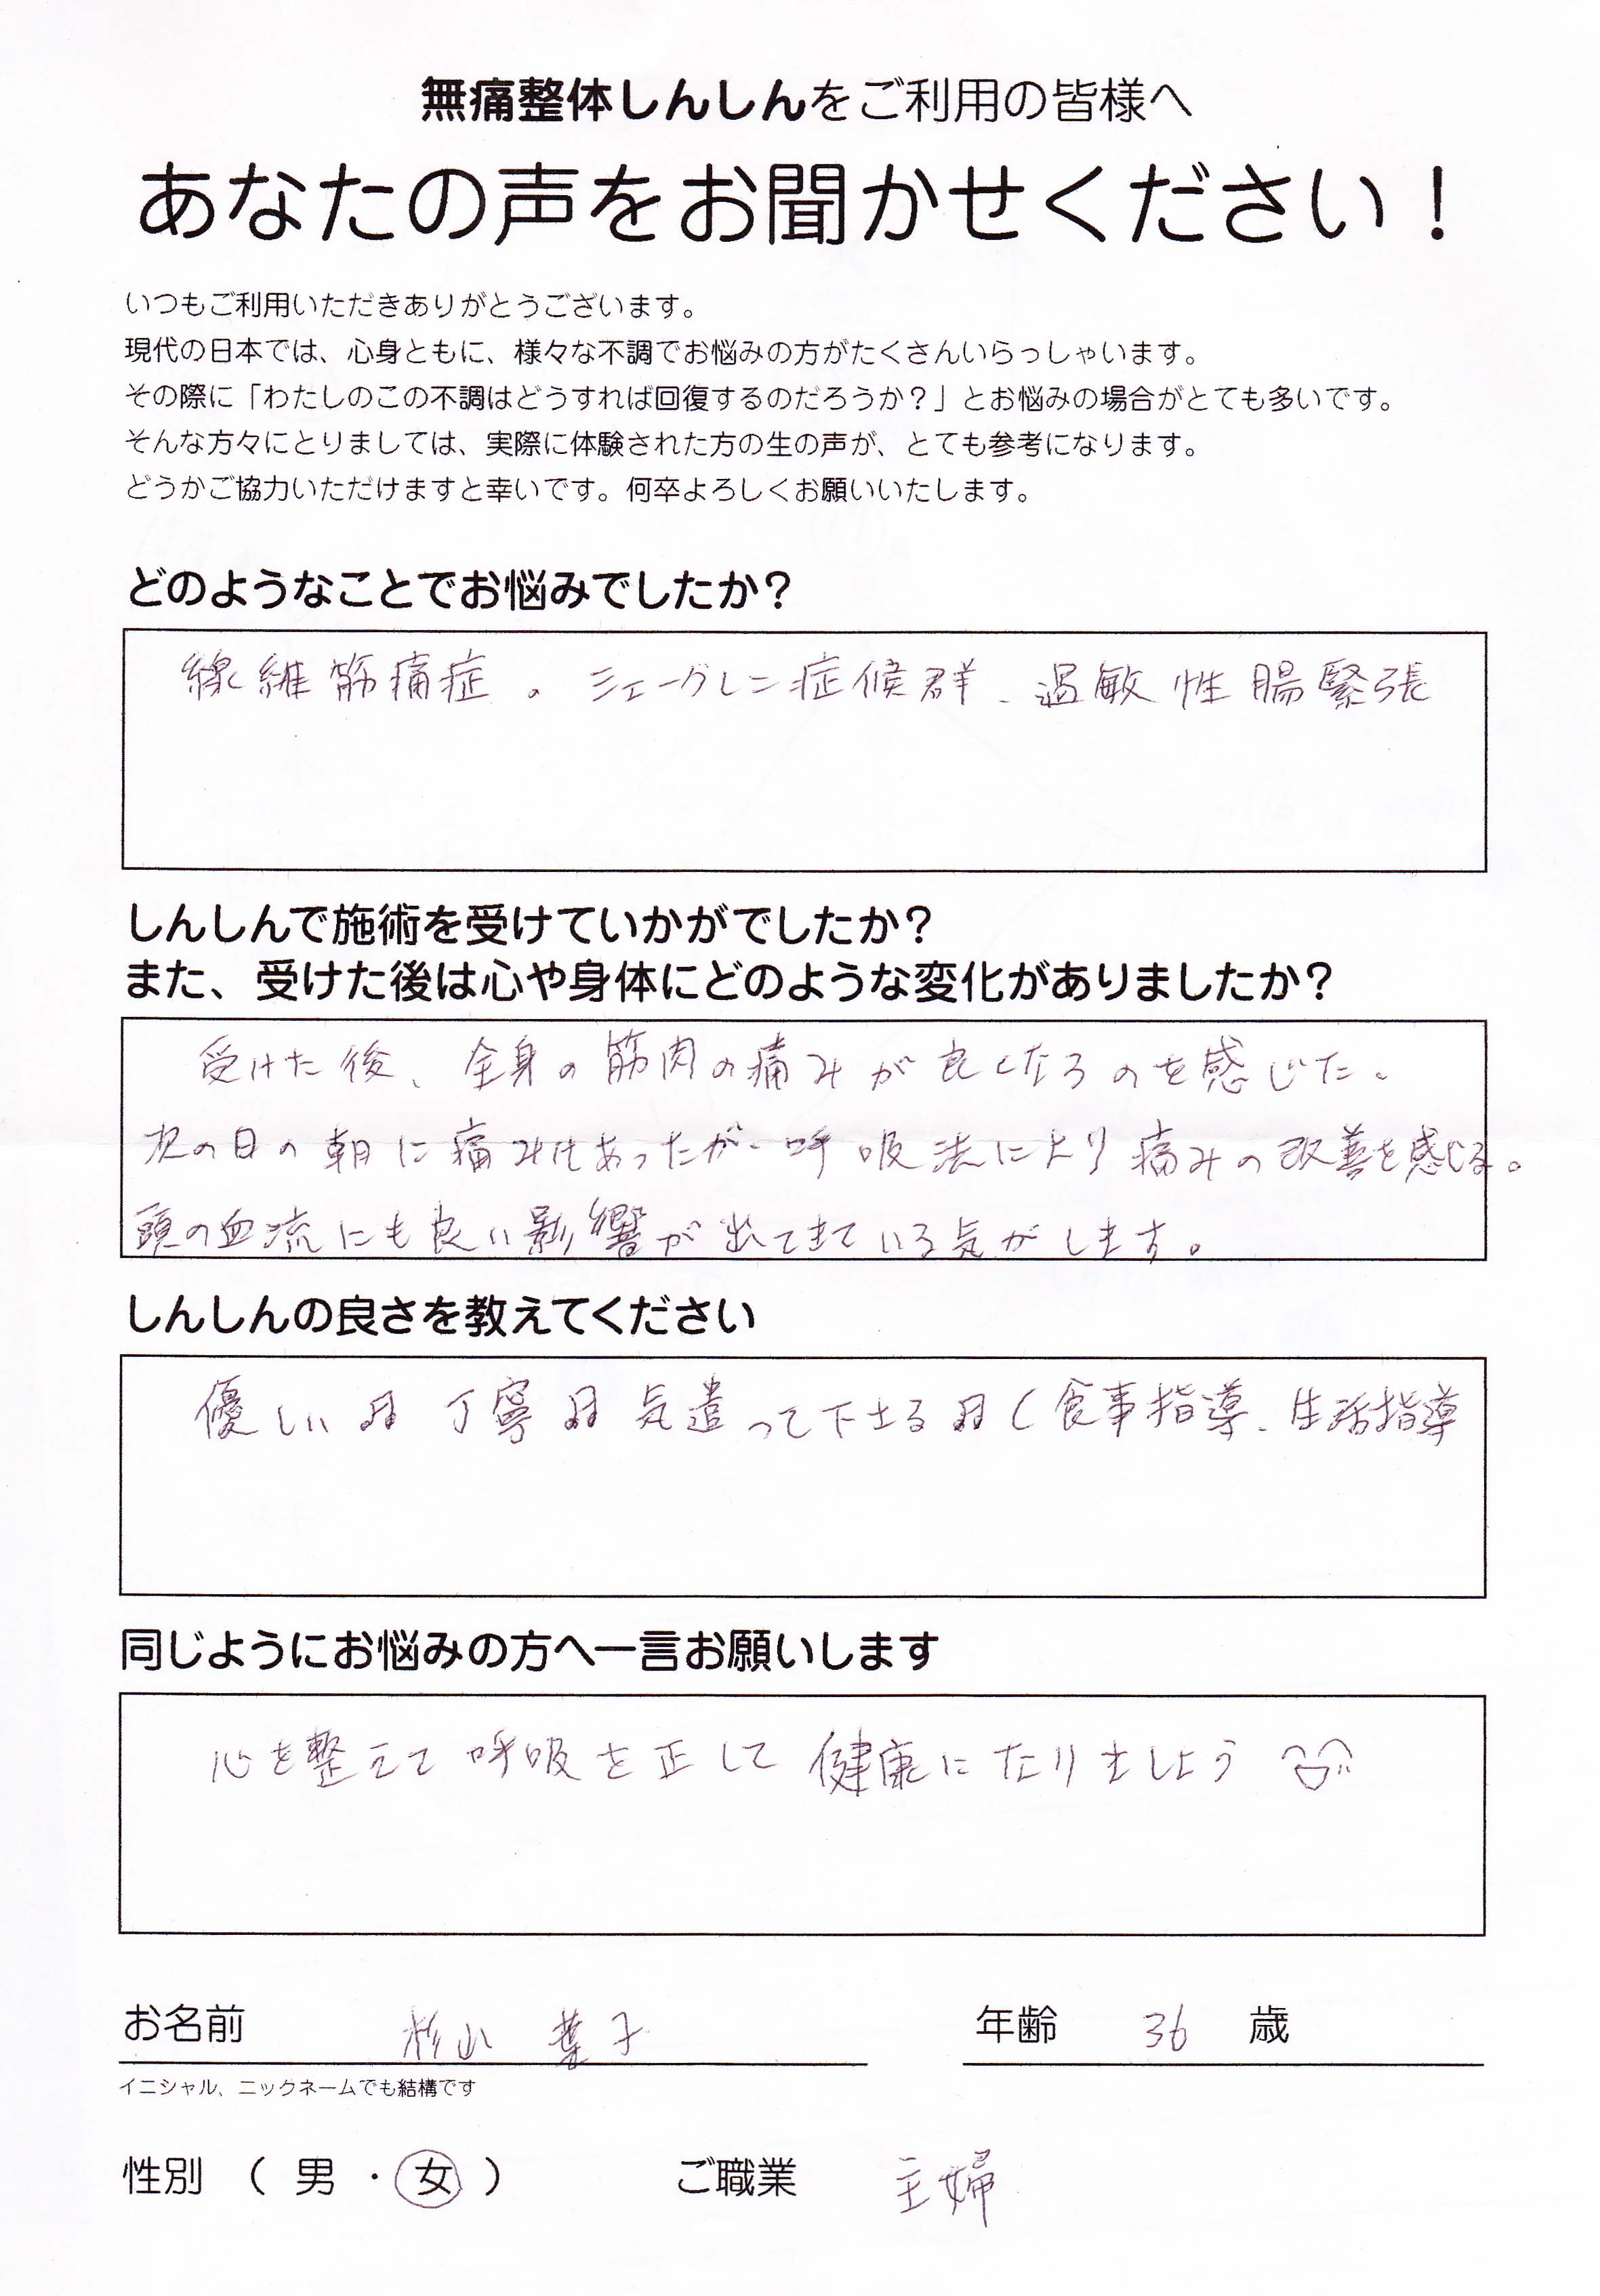 無痛整体しんしんをご利用の皆様へ
あなたの声をお聞かせください！
いつもご利用いただきありがとうございます。
現代の日本では、心身ともに、様々な不調でお悩みの方がたくさんいらっしゃいます。
その際に「わたしのこの不調はどうすれば回復するのだろうか？」とお悩みの場合がとても多いです。
そんな方々にとりましては、実際に体験された方の生の声が、とても参考になります。
どうかご協力いただけますと幸いです。何卒よろしくお願いいたします。
どのようなことでお悩みでしたか？
線維筋痛症。シェーグレン症候群、過敏性腸緊張
しんしんで施術を受けていかがでしたか？
また、受けた後は心や身体にどのような変化がありましたか？
受けた後、全身の筋肉の痛みが良くなるのを感じた。
次の日の朝に痛みもあったが、呼吸法により痛みの改善を感じる。
頭の血流にも良い影響が出てきている気がします。
しんしんの良さを教えてください
優しい♫ 丁寧♫ 気遣って下さる♫ (食事指導、生活指導
同じようにお悩みの方へ一言お願いします
心を整えて呼吸を正して健康になりましょう
お名前 杉山 葉子 年齢 36 歳
イニシャル、ニックネームでも結構です
性別 （ 男 ・ 女 ） ご職業 主婦